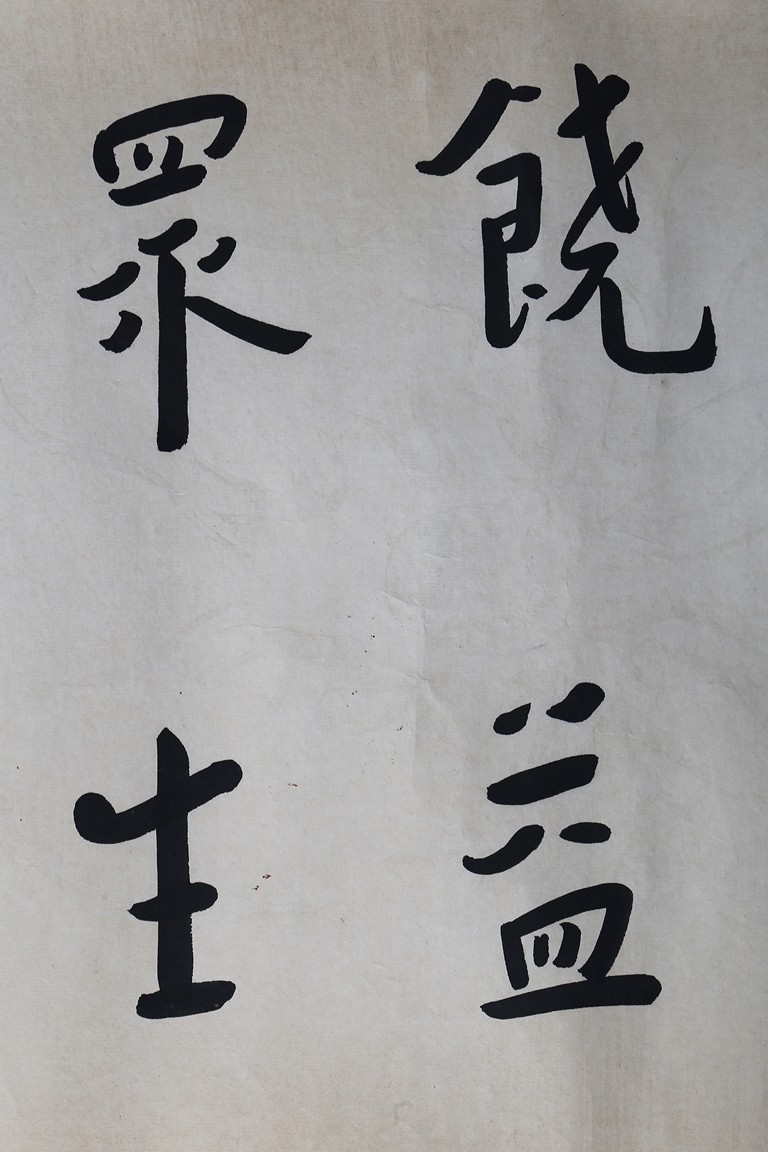 饒益
眾生